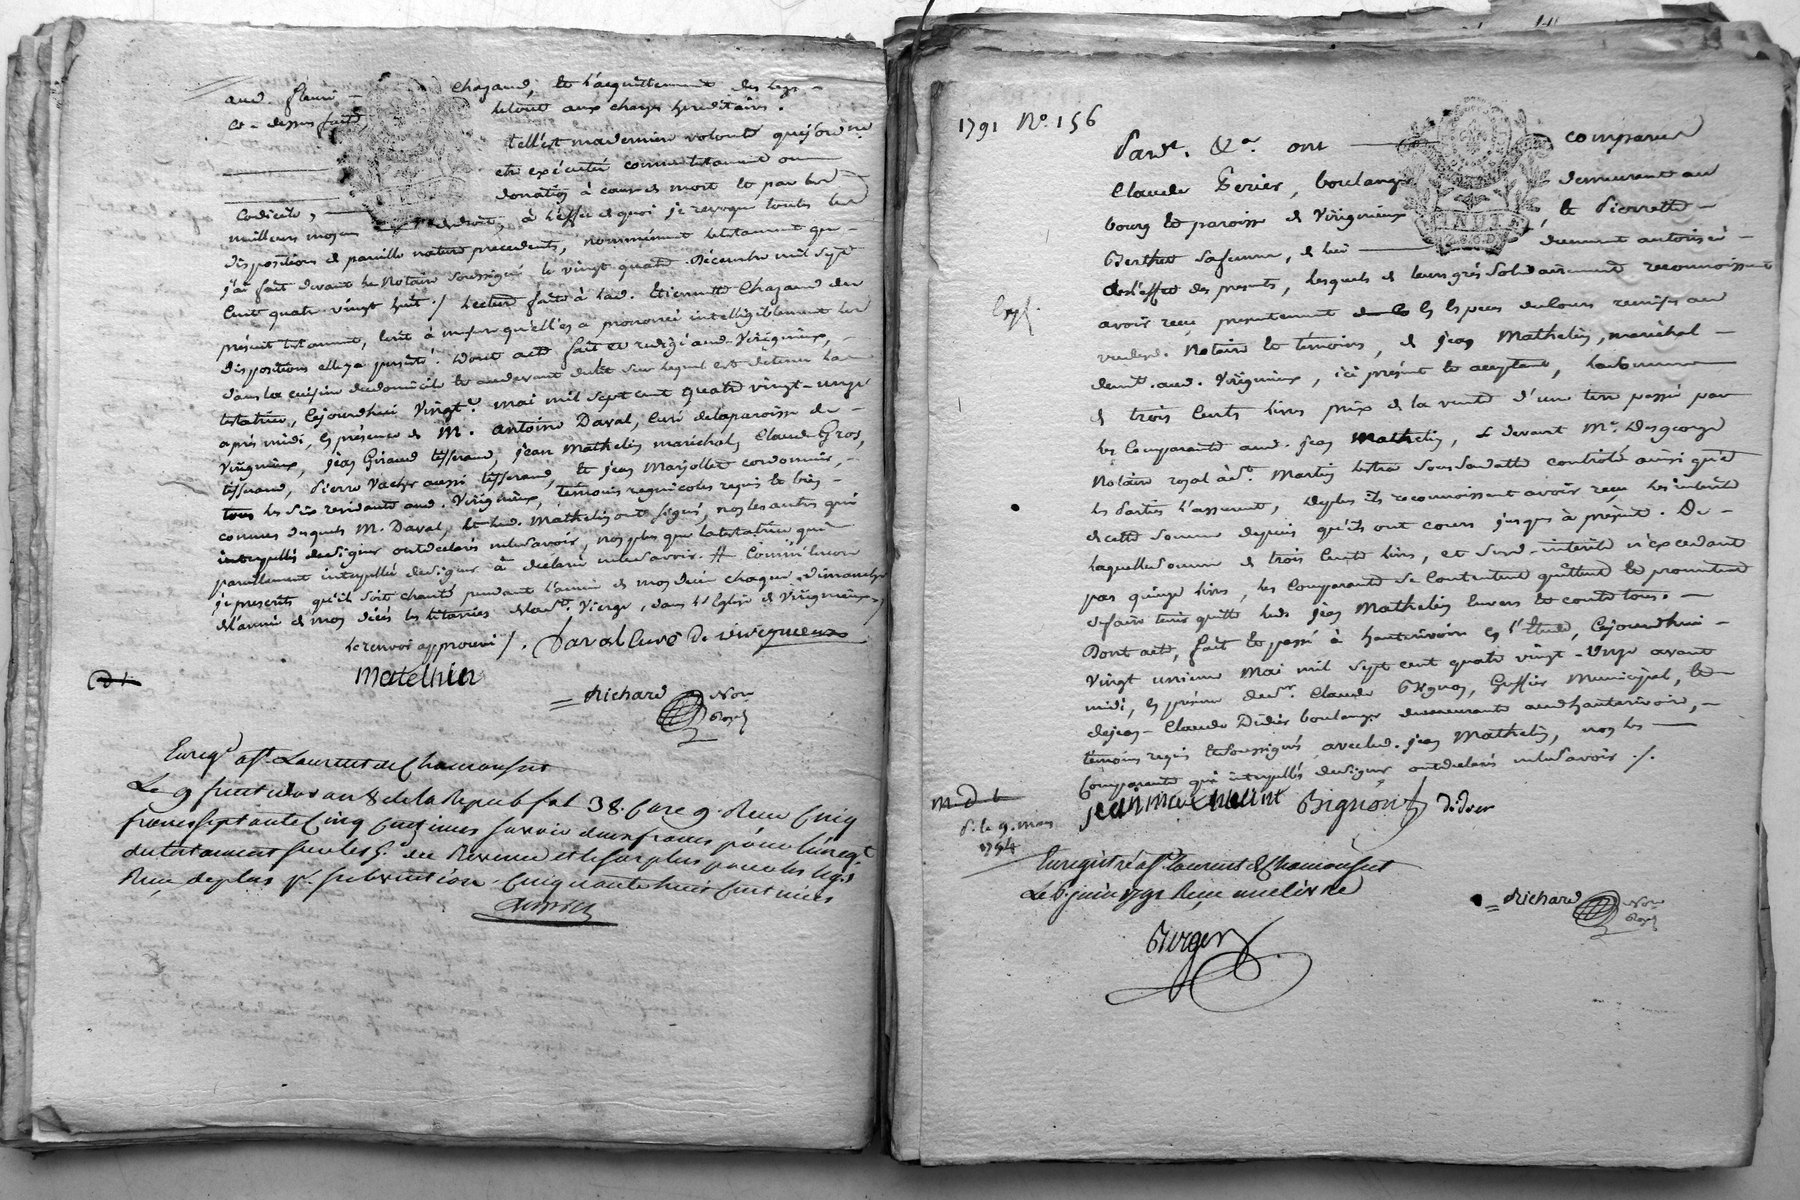 aud. fleuri - Chazaud, et l'acquittement des legs -
ci-dessus faits, le tout aux charges hereditaires.
telle est ma derniere volonté que j'ordonne
etre exécutée comme testament ou
donation à cause de mort et par tous
Codicile,
meilleurs moyens de droit, à l'effet de quoi je revoque toutes les
dispositions de pareille nature precedents, nommément le testament que
j'ai fait devant le Notaire soussigné le vingt quatre Decembre mil sept
cent quatre vingt huit / Lecture faite à lad. Etiennette Chazaud du
présent testament, tout à mesure qu'elle a prononcé intelligiblement les
dispositions elle y a persisté; dont acte fait et redigé aud. Virigneux,
dans la cuisine du domicile et audevant du lit sur lequel est detenue la
testatrice, Cejourdhui Vingt mai mil sept cent quatre vingt-onze
après midi, en présence de M. Antoine Daval, Curé de la paroisse de
Virigneux, jean Giraud tisserand, jean Mathelin maréchal, Claude Gros,
tisserand, Pierre Vacher aussi tisserand, et jean Marjollet cordonnier,
tous les six residants aud. Virigneux, temoins regnicoles requis et bien
connus desquels M. Daval, et led. Mathelin ont signé, non les autres qui
interpellés de signer ont declaré ne le savoir, non plus que la testatrice qui
pareillement interpellée de signer a déclaré ne le savoir. # Comme
je prescrits qu'il soit chanté pendant l'année de mon deces chaque dimanche
de l'année de mon décès les litanies de la Ste. Vierge, dans l'Eglise de Virigneux
le renvoi approuvé /. Daval Curé De virigneux
matelhin
= Richard Nore
Royal
Enregé. à St. Laurent de Chamousset
Le 9 an 8 de la Repub. fol 38. Care 9. Reçu Cinq
francs septante Cinq Centimes savoir deux francs pour l'enregt.
du testament sur les de Revenu et le surplus pour les legs
Reçu de plus pr. subvention Cinquante huit Centimes
1791 No. 156
Pardt. &a. ont comparu
Claude Perier, boulanger demeurant au
bourg et paroisse de Virigneux, et Pierrette
Berthet sa femme, de lui duement autorisée
à l'effet des presents, lesquels de leurs grés solidairement reconnoissent
avoir reçu presentement en especes de cours remises au
vu desd. Notaire et temoins, de jean Mathelin, maréchal
demt. aud. Virigneux, ici présent et acceptant, la somme
de trois cents livres prix de la vente d'une terre passée par
les Comparants aud. jean Mathelin, devant Me. Desgeorge
Notaire royal à St. Martin Lestra sous sa datte controlé ainsi que
les Parties l'assurent, deplus ils reconnoissent avoir reçu les interets
de cette somme depuis qu'ils ont cours jusques à présent. De
laquelle somme de trois cents livres, et sesd. interets n'excedant
pas quinze livres, les Comparants se contentent quittent et promettent
de faire tenir quitte led. jean Mathelin envers et contre tous.
Dont acte, fait et passé à hauterivoire en l'Etude, Cejourdhui
Vingt unieme Mai mil sept cent quatre vingt-onze avant
midi, en présence de sr. Claude Bignon, Greffier Municipal, et
de jean-Claude Didier boulanger demeurants aud. hauterivoire,
temoins requis et soussignés, avec led. jean Mathelin, non les
Comparants qui interpellés de signer ont declaré ne le savoir /.
Bignon Didier
m d t
1794
Enregistré à St. Laurent de Chamousset
Le 6. juin 1791 Reçu une livre
= Richard Nore
Royal
Berger